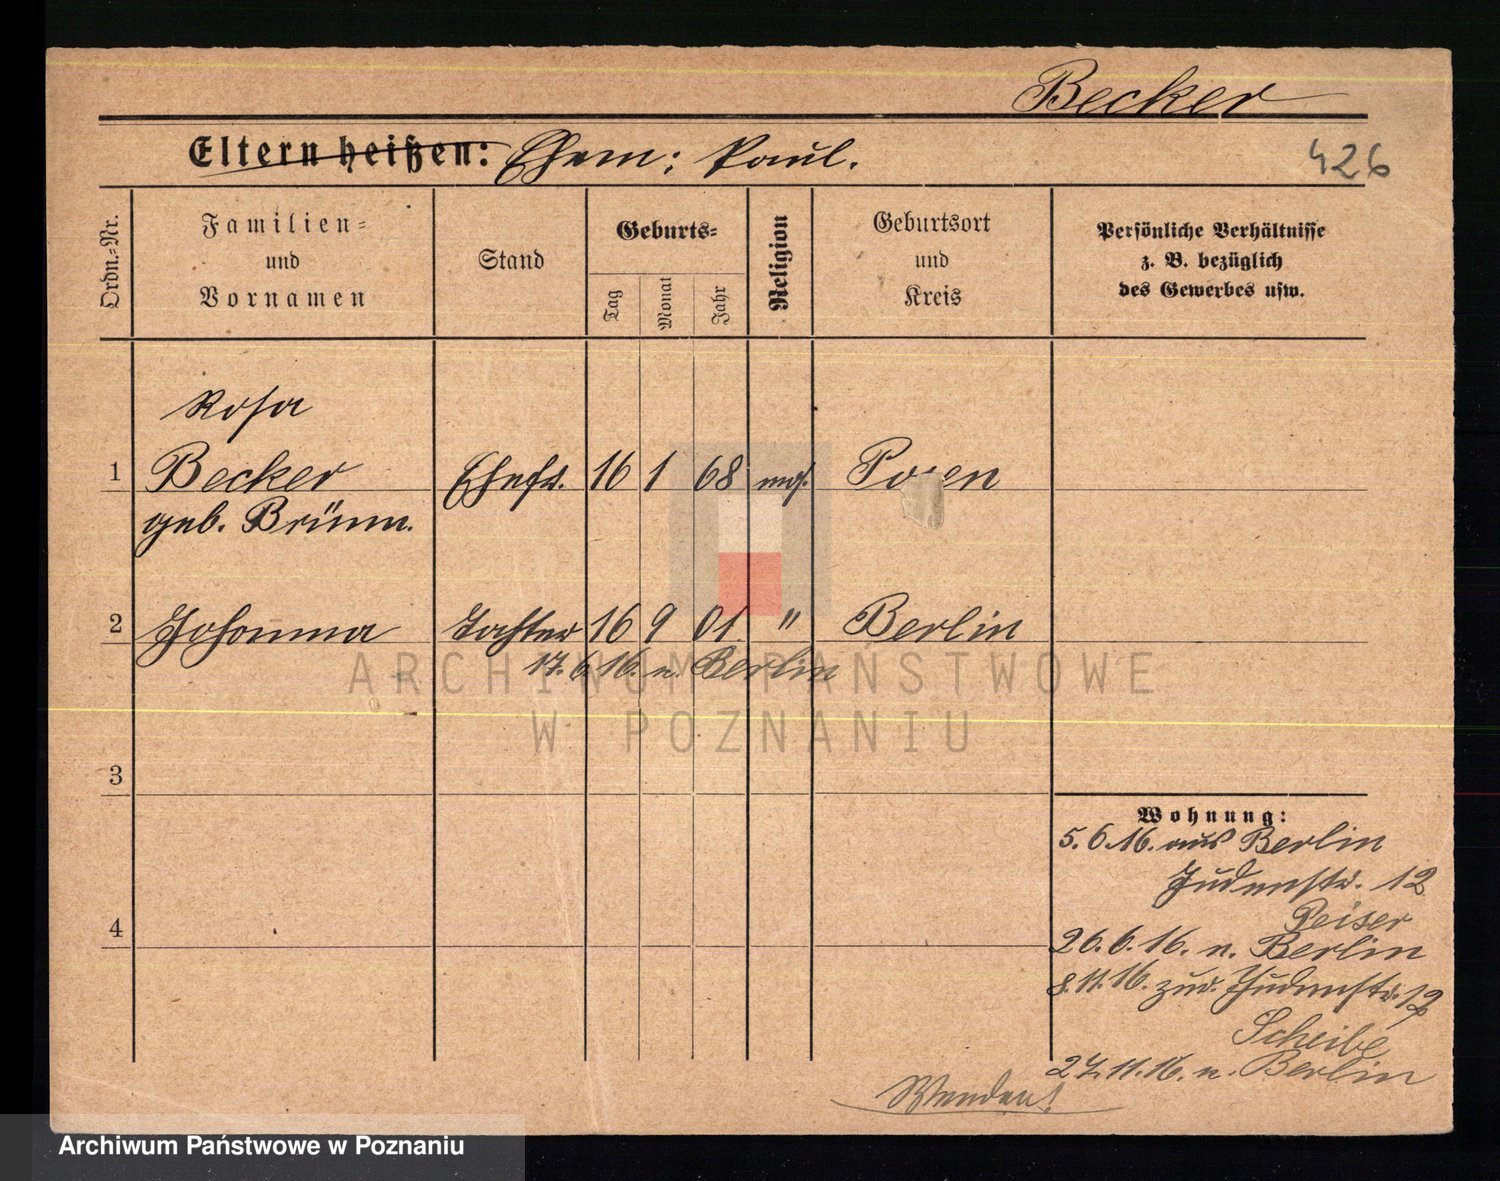 Becker
Eltern heißen: Ehem: Paul.
426
Ordn.-Nr.
Familien-
und
Vornamen
Stand
Geburts-
Tag
Monat
Jahr
Religion
Geburtsort
und
Kreis
Persönliche Verhältnisse
z. B. bezüglich
des Gewerbes usw.
Rosa
1 Becker Ehefr. 16 1 68 mos. Posen
geb. Brünn.
2 Johanna Tochter 16 9 01 " Berlin
17. 6. 16. n. Berlin
ARCHIWUM PAŃSTWOWE
W POZNANIU
3
4
Wohnung:
5. 6. 16. aus Berlin
Judenstr. 12
Peiser
26. 6. 16. n. Berlin
8. 11. 16. zur. Judenstr. 12
Scheibe
27. 11. 16. n. Berlin
Wenden!
Archiwum Państwowe w Poznaniu